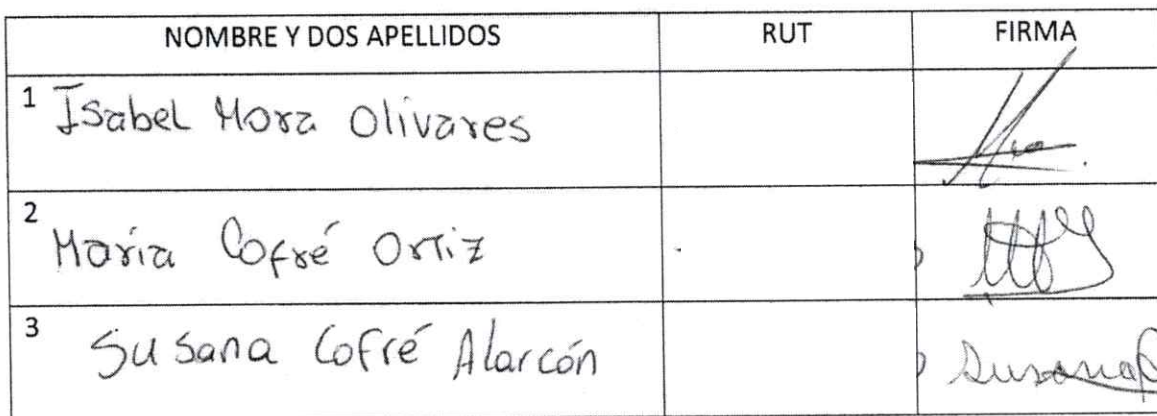 NOMBRE Y DOS APELLIDOS RUT FIRMA
1 Isabel Mora Olivares
2 María Cofré Ortiz
3 Susana Cofré Alarcón Susana